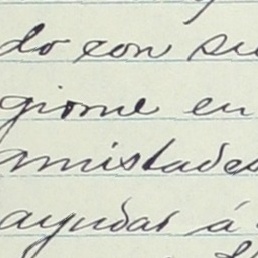 do con su
gione en
amistades
ayudar á